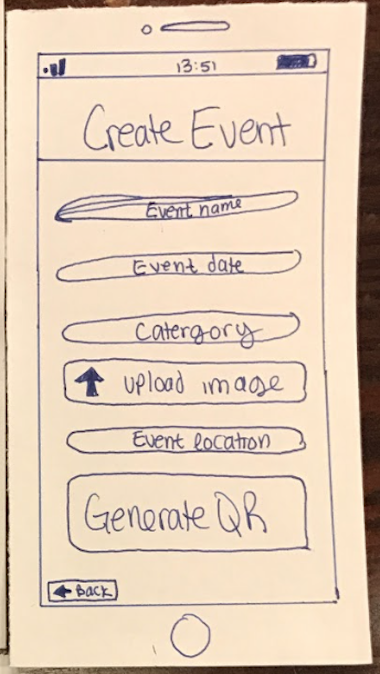 13:51
Create Event
Event name
Event date
Catergory
upload image
Event location
Generate QR
Back